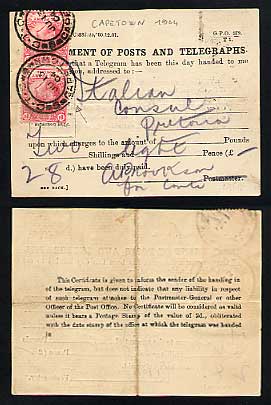 CAPETOWN 1904
G.P.O.
MENT OF POSTS AND TELEGRAPHS.
that a Telegram has been this day handed to me
addressed to:—
Italian
Consul
Pretoria
upon which charges to the amount of Pounds
Two Shillings and Eight Pence (£ -
2 8 d.) have been duly paid.
Postmaster.
[SEE BACK.]
This Certificate is given to inform the sender of the handing in
of the telegram, but does not indicate that any liability in respect
of such telegram attaches to the Postmaster-General or other
Officer of the Post Office. No Certificate will be considered as valid
unless it bears a Postage Stamp of the value of 2d., obliterated
with the date stamp of the office at which the telegram was handed
in